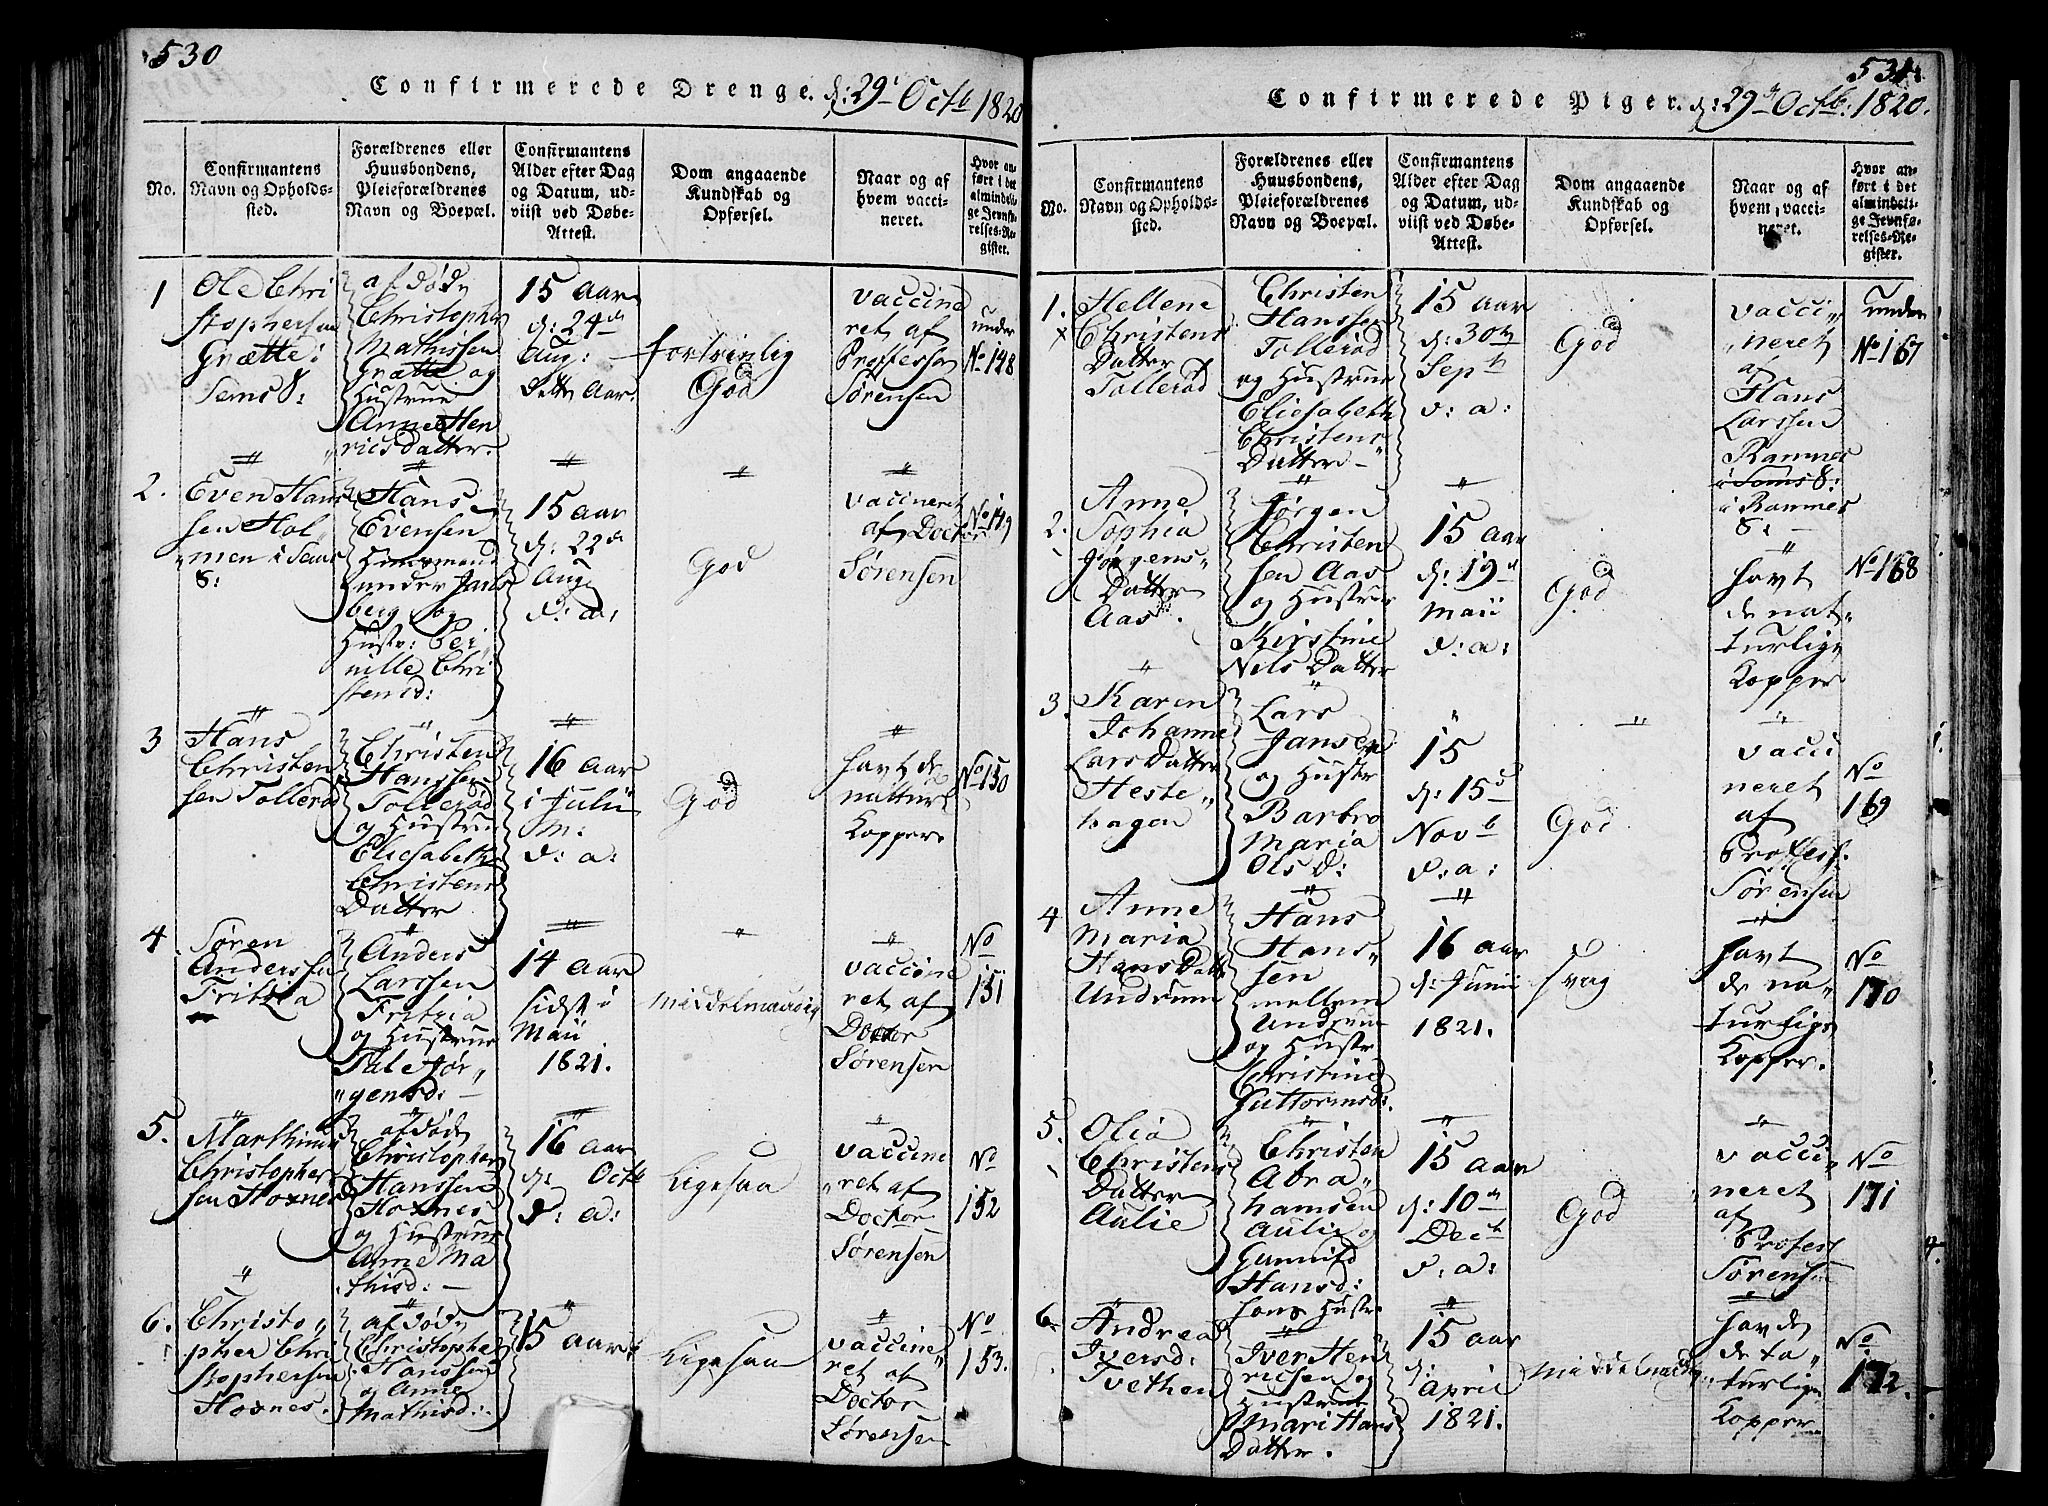 530
Confirmerede Drenge. d: 29 Octb 1820
No.
Confirmantens
Navn og Opholds-
sted.
Forældrenes eller
Huusbondens,
Pleieforældrenes
Navn og Boepæl.
Confirmantens
Alder efter Dag
og Datum, ud-
viist ved Døbe-
Attest.
Dom angaaende
Kundskab og
Opførsel.
Naar og af
hvem vacci-
neret.
Hvor an-
ført i det
almindeli-
ge Jevnfø-
relses-Re-
gister.
1
Ole Chri
stophersen
Grætte:
Sems S:
afdøde
Christopher
Mathissen
Grætte og
Hustrue
Anne Hen
ricsdatter.
15 Aar
d: 24de
Aug:
dette Aar.
fortrinlig
God
vaccine
ret af
Professor
Sørensen
under
No 148
2.
Even Hans
sen Hol
men i Sems
S:
Hans
Evensen
Huusmand
under Jarls
berg og
Hustr: Per
nille Chri
stensd:
15 Aar
d: 22de
Aug
d: a:
God
vaccineret
af Doctor
Sørensen
No 149
3
Hans
Christen
sen Tollerød
Christen
Hanssen
Tollerød
og Hustrue
Eliesabeth
Christens
Datter
16 Aar
i Julii
M:
d: a:
God
havt de
natturl
Kopper
No 150
4.
Søren
Anderssen
Fritzia
Anders
Larssen
Fritzia
og Hustrue
Tale Jør
gensd:
14 Aar
sidst i
Maii
1821.
middelmaadig
vaccine
ret af
Doctor
Sørensen
No
151
5.
Marthinus
Christopher
sen Hoxnes
afdøde
Christopher
Hanssen
Hoxnes
og Hustrue
Anne Ma
thisd:
16 Aar
d: Octb
d: a:
Ligesaa
vaccine
ret af
Doctor
Sørensen
No
152
6.
Christo
pher Chri
stophersen
Hoxnes.
afdøde
Christopher
Hanssen
og Anne
Mathisd:
15 Aar
Ligesaa
vaccine
ret af
Doctor
Sørensen
No
153.
531.
Confirmerede Piger. d: 29de Octb: 1820.
No.
Confirmantens
Navn og Opholds-
sted.
Forældrenes eller
Huusbondens,
Pleieforældrenes
Navn og Boepæl.
Confirmantens
Alder efter Dag
og Datum, ud-
viist ved Døbe-
Attest.
Dom angaaende
Kundskab og
Opførsel.
Naar og af
hvem vacci-
neret.
Hvor an-
ført i det
almindeli-
ge Jevnfø-
relses-Re-
gister.
1.
Hellene
Christens
Datter
Tollerød
Christen
Hanssen
Tollerød
og Hustrue
Eliesabeth
Christens
Datter
15 Aar
d: 30te
Septb
d: a:
God
vacci
neret
af
Hans
Larssen
Ramnes
i Sems S:
i Ramnes
S:
under
No 167
2.
Anne
Sophia
Jørgens
Datter
Aas.
Jørgen
Christen
sen Aas
og Hustrue
Kirstine
Nils Datter
15 Aar
d: 19de
Maii
d: a:
God
havt
de nat
turlige
Kopper
No 168
3.
Karen
Johanne
Lars Datter
Heste
hagen
Lars
Jansen
og Hustr
Barbro
Maria
Ols D:
15
d: 15de
Novb
d: a:
God
vacci
neret
af
Profess:
Sørensen
No
169
4
Anne
Maria
Hans Datt
Undrum
Hans
Hans
sen
mellem
Undrum
og Hustr
Christine
Guttormsd:
16 Aar
d: Junii
1821.
svag
havt
de na
turlige
Kopper.
No
170
5.
Olia
Christens
Datter
Aulie
Christen
Abra
hamsen
Aulie og
Gunnild
Hansd:
hans Hustr.
15 Aar
d: 10de
Decb
d: a:
God
vacci
neret
af
Profess
Sørensen
No
171
6.
Andrea
Iversd:
Tvethen
Iver Hen
ricsen og
Hustrue
Mari Hans
Datter.
15 Aar
d:
April
1821.
middelmaadig
hav de
de ta
turlige
Kopper
No.
172.